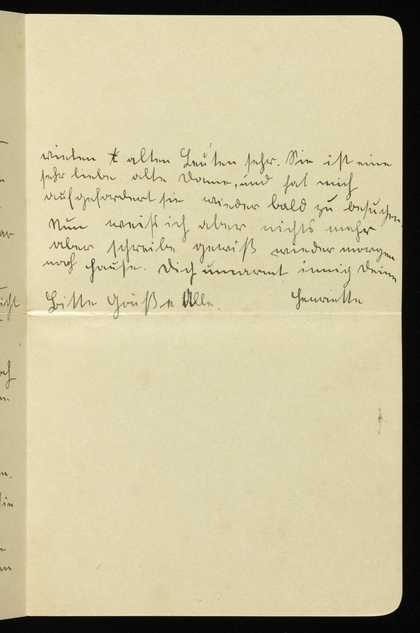 vielen alten Leuten sehr. Sie ist eine
sehr liebe alte Dame, und hat mich
aufgefordert sie wieder bald zu besuchen
Nun weiß ich aber nichts mehr
aber schreibe gewiß wieder morgen
nach Hause. Dich umarmt innig Deine
Henriette
Bitte Grüße Alle.